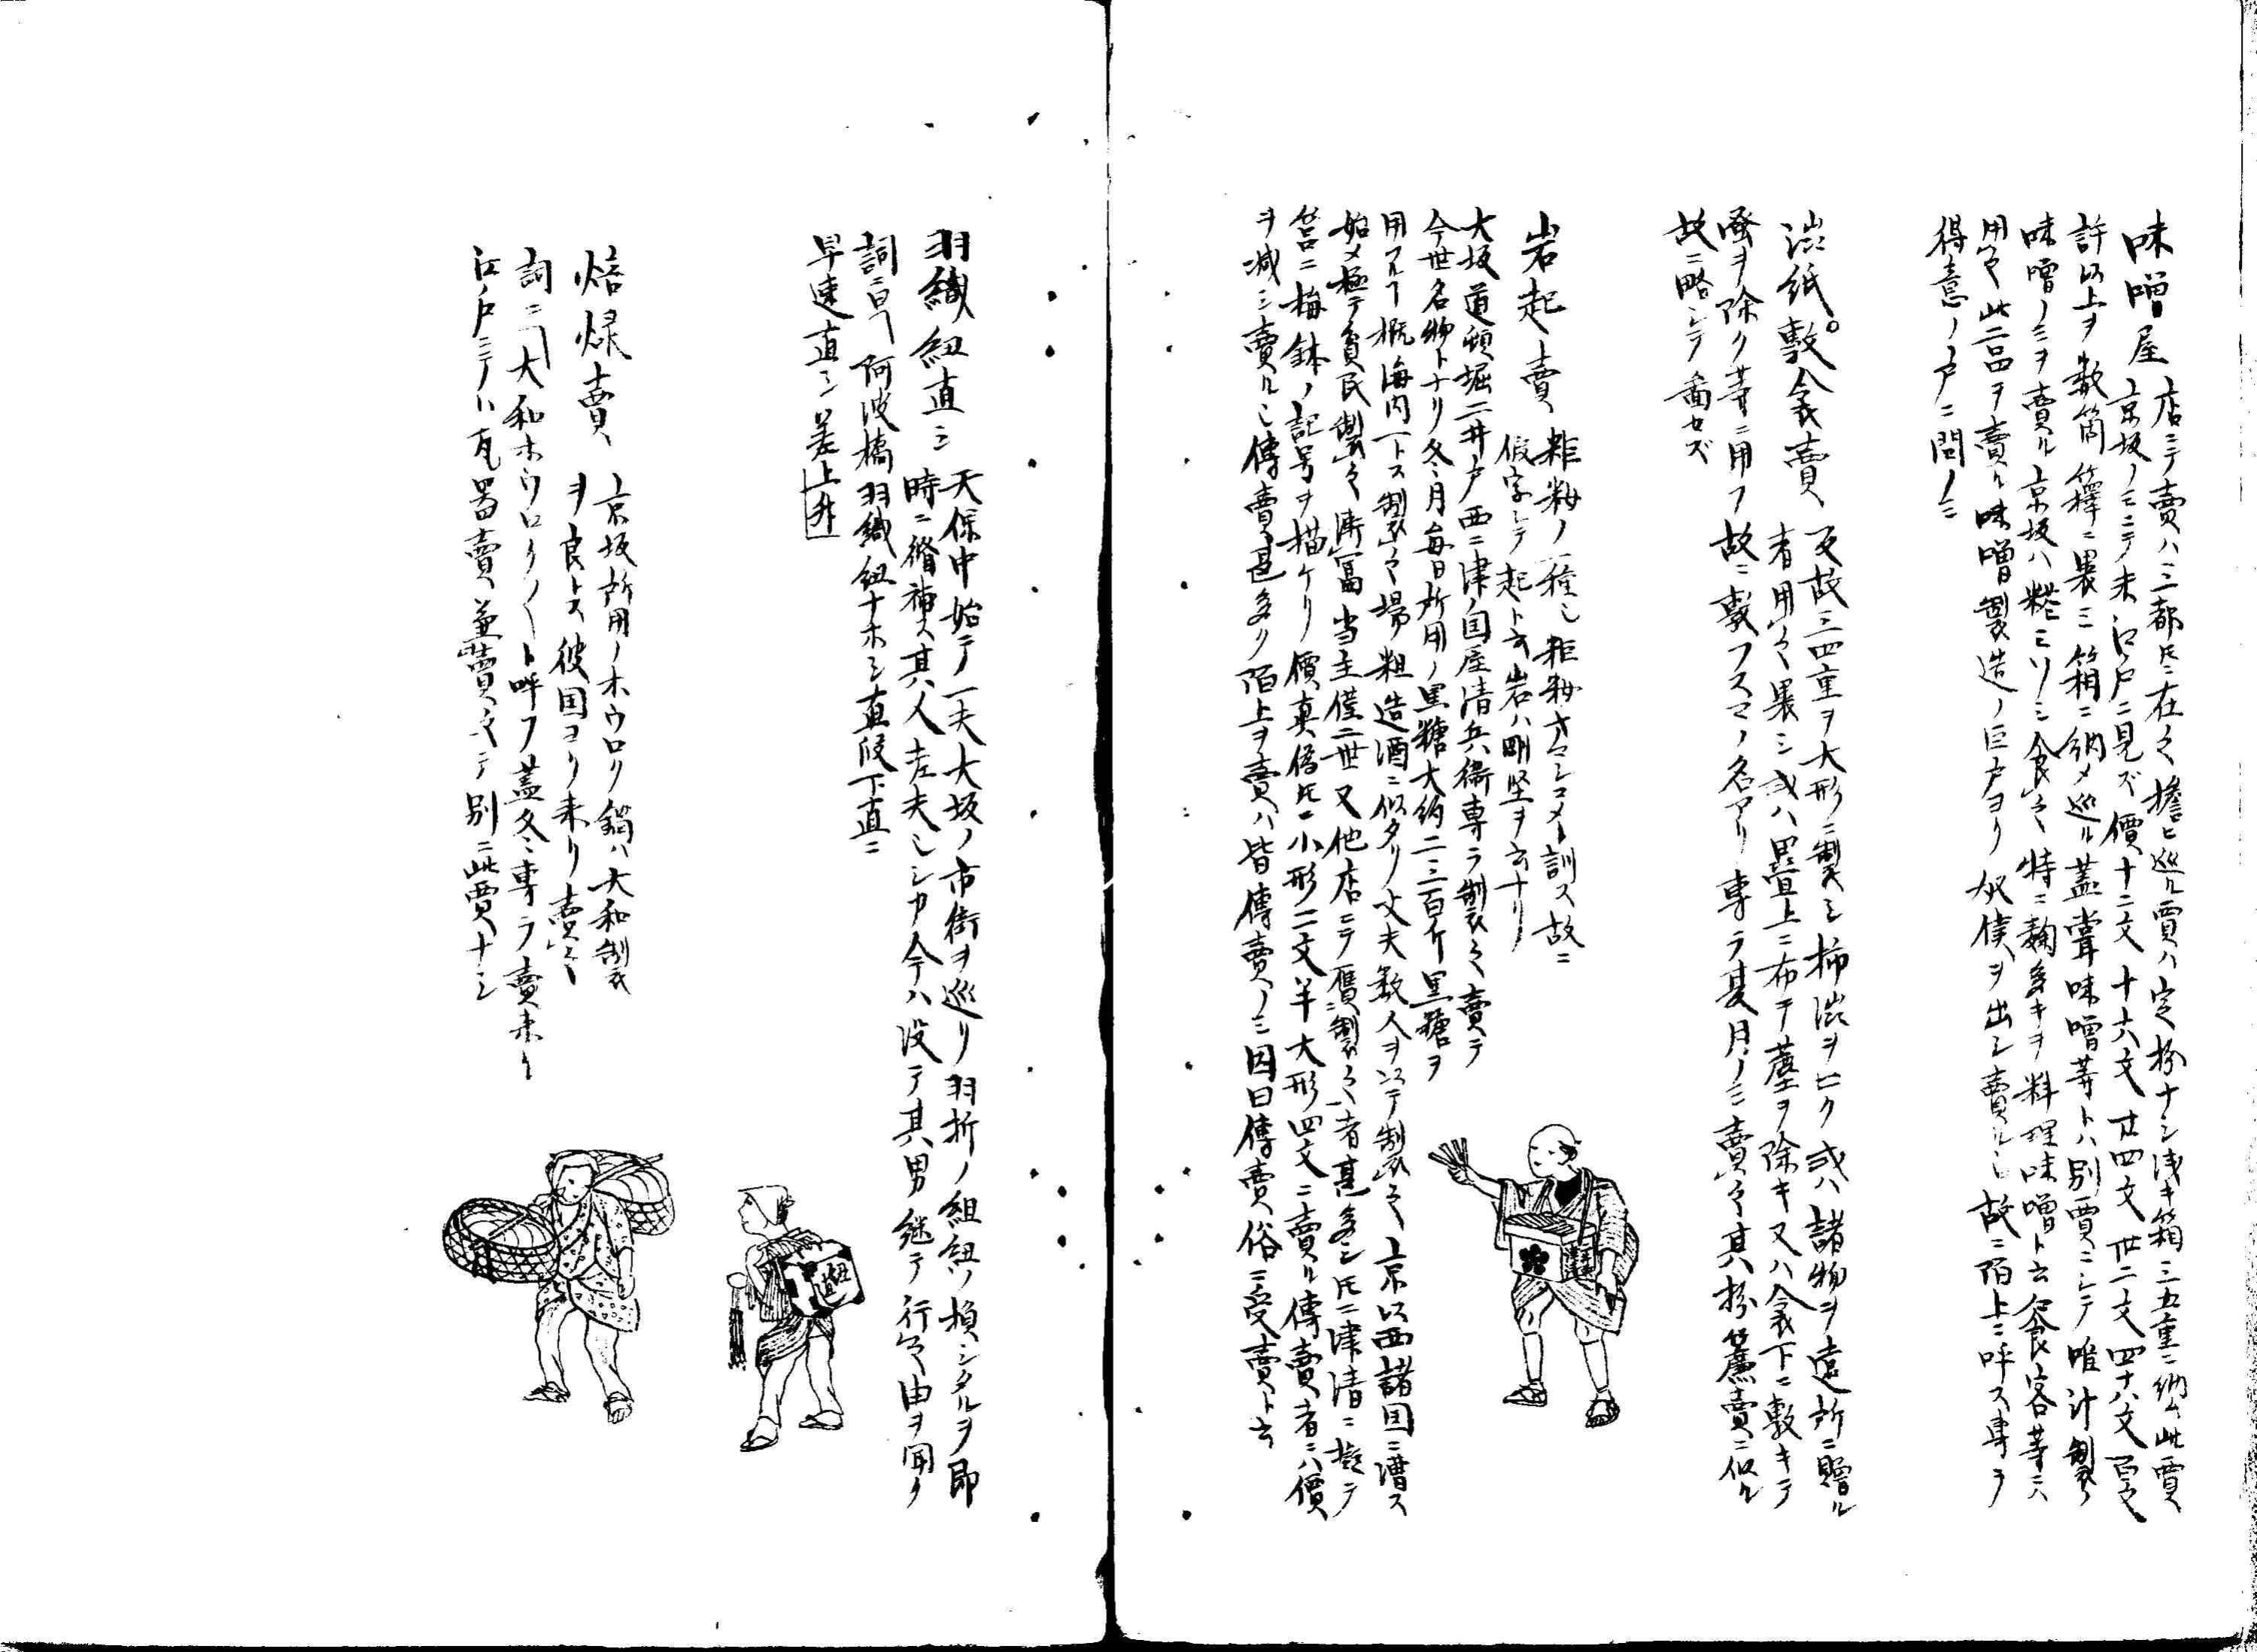 味噌屋
店ニテ賣ハ三都トモニ在之擔ヒ巡ル賈ハ定扮ナシ浅キ箱三五重ニ納ム此賈
京坂ノミニテ未江戸ニ見ズ價十二文十六文廿四文卅二文四十八文百文
許以上ヲ數箇籜ニ裹ミ箱ニ納メ巡ル蓋嘗味噌等トハ別賈ニシテ唯汁製ノ
味噌ノミヲ賣ル京坂ハ糂ミソヲ食之特ニ麹多キヲ料理味噌ト云食客等ニハ
用之此二品ヲ賣ル味噌製造ノ巨戸ヨリ奴僕ヲ出シ賣ル也故ニ陌上ニ呼ス専ラ
得意ノ戸ニ問ノミ
渋紙。敷衾賣
反故三四重ヲ大形ニ製シ柿渋ヲヒク或ハ諸物ヲ遠所ニ贈ル
者用之裹ミ或ハ畳上ニ布テ塵ヲ除キ又ハ衾下ニ敷キテ
蚤ヲ除ク等ニ用フ故ニ敷フスマノ名アリ専ラ夏月ノミ賣之其扮簾賣ニ似ル
故ニ略シテ画セズ
岩起シ賣
粔籹ノ一種也粔籹オコシコメト訓ス故ニ
假字シテ起ト云岩ハ剛堅ヲ云ナリ
大坂道頓堀二井戸西ニ津ノ国屋清兵衛専ラ製之賣テ
今世名物トナリ冬月毎日所用ノ黒糖大約二三百斤黒糖ヲ
用フルヿ概海内一トス製之場粗造酒ニ似タリ丈夫數人ヲ以テ製之京以西諸国ニ漕ス
始メ極テ貧民製之漸富当主僅二世又他店ニテ贋製之者甚多シ氏ニ津清ニ擬テ
筥ニ梅鉢ノ記号ヲ描ケリ價真偽トモニ小形二文半大形四文ニ賣ル傳賣者ニハ價
ヲ減シ賣ル也傳賣甚多ク陌上ヲ賣ハ皆傳賣ノミ因曰傳賣俗ニ受賣ト云
羽織紐直シ
天保中始テ一夫大坂ノ市街ヲ巡リ羽折ノ組紐ノ損シタルヲ即
時ニ補ス其人老夫也シカ今ハ没テ其男継テ行之由ヲ聞ク
詞ニ曰阿波橋羽織紐ナホシ直段下直ニ
早速直シ差上升
焙烙賣
京坂所用ノホウロク鍋ハ大和製
ヲ良トス彼国ヨリ来リ賣之
詞ニ大和ホウロク〱ト呼フ蓋冬ニ専ラ賣来ル
江戸ニテハ瓦器賣兼賣之テ別ニ此賈ナシ
紐直